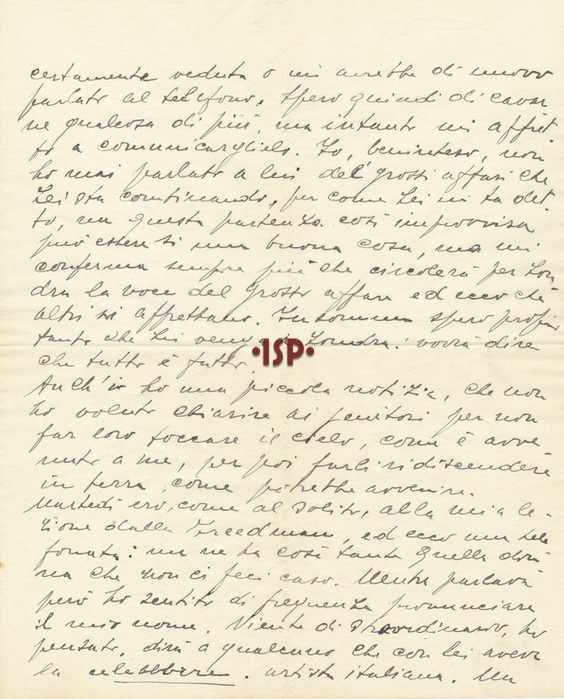 certamente veduta o mi avrebbe di nuovo
parlato al telefono. Spero quindi di cavar
ne qualcosa di più, ma intanto mi affret
to a comunicarglielo. Io, beninteso, non
ho mai parlato a lui del grossi affari che
Lei sta combinando, per come Lei mi ha det
to, ma questa partenza così improvvisa
può essere sì una buona cosa, ma mi
conferma sempre più che circolerà per Lon
dra la voce del grosso affare ed ecco che
altri si affrettano. Insomma spero
tanto che Lei venga a Londra: vorrà dire
che tutto è fatto.
•ISP•
Anch'io ho una piccola notizia, che non
ho voluto chiarire ai genitori per non
far loro toccare il cielo, come è avve
nuto a me, per poi farli ridiscendere
in terra, come potrebbe avvenire.
Martedì ero, come al solito, alla mia le
zione dalla Freedman, ed ecco una tele
fonata: me ne fa così tante quella don
na che non ci feci caso. Mentre parlava
però ho sentito di frequente pronunciare
il mio nome. Niente di straordinario, ho
pensato, dirà a qualcuno che con lei aveva
la celebbere. artista italiana. Ma